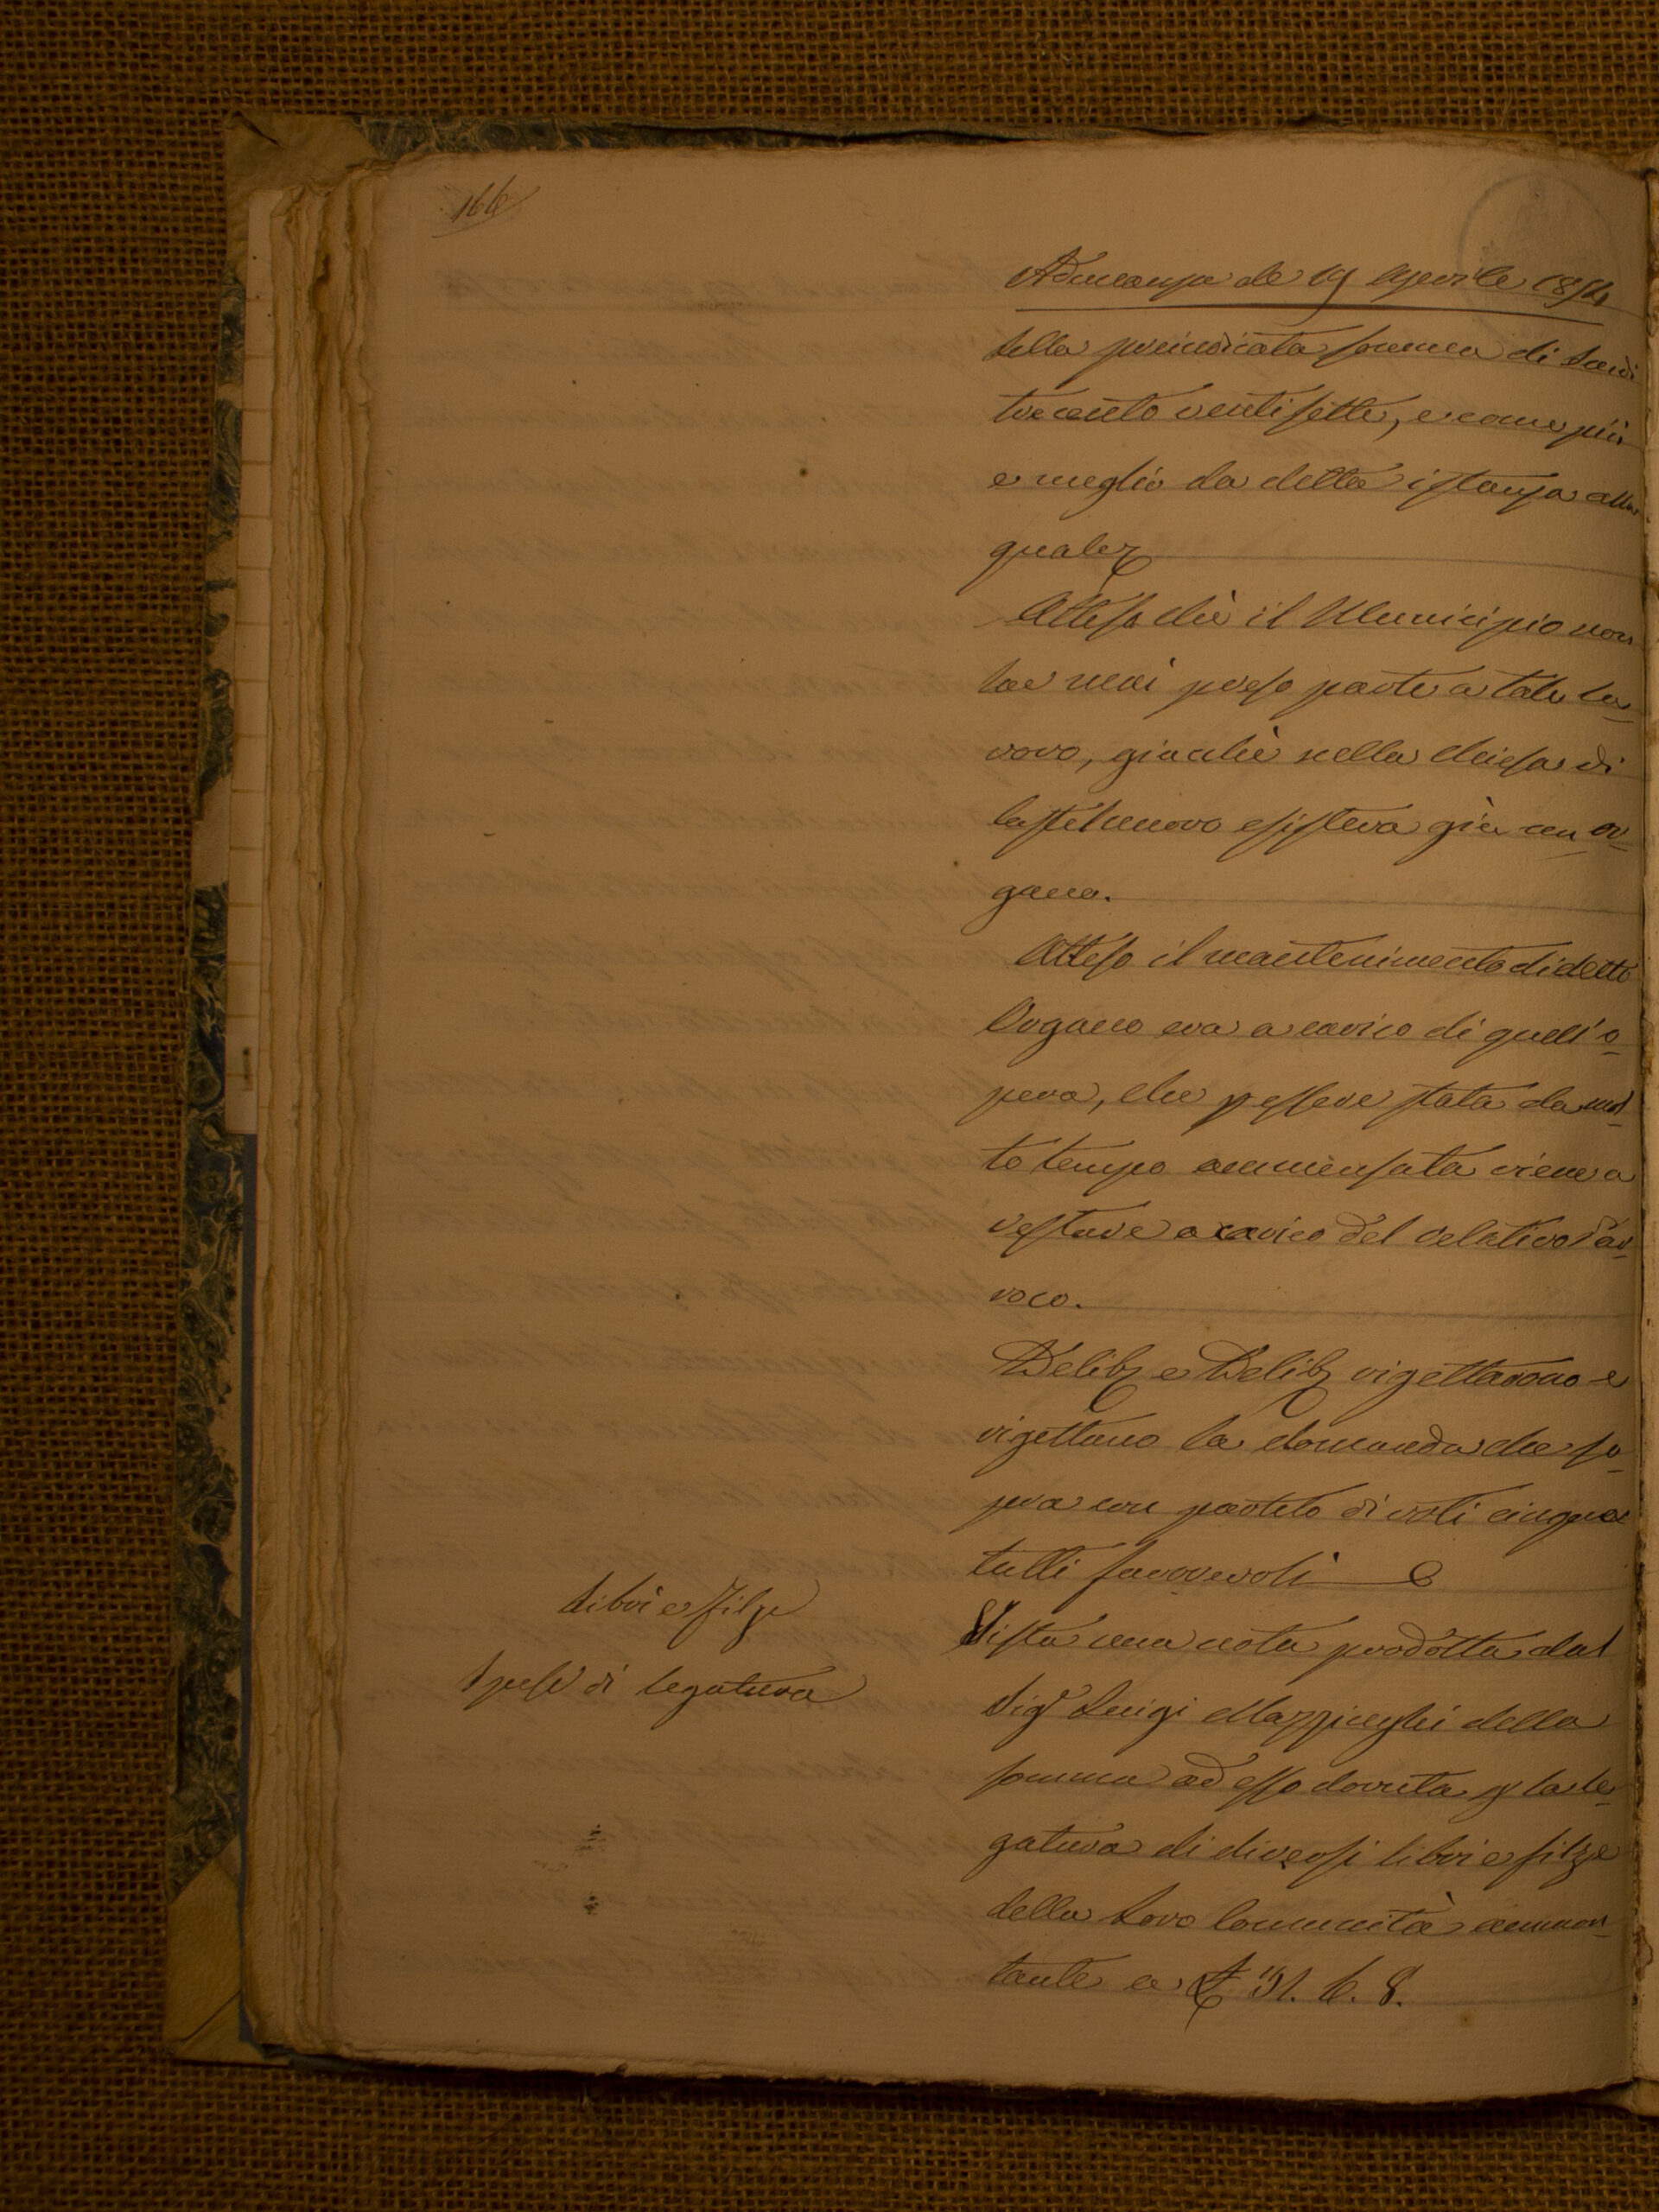 166
Adunanza de 19 Aprile 1854
della preindicata somma di Scudi
trecento ventisette, e come più
e meglio da detta istanza alla
quale
Atteso chè il Municipio non
ha mai preso parte a tale la-
voro, giacchè nella Chiesa di
Castelnuovo esisteva già un or-
gano.
Atteso il mantenimento di detto
Organo era a carico di quell'o-
pera, che p essere stata da mol
to tempo ammensata viene a
restare a carico del relativo Par-
roco.
Delib e Delib rigettarono e
rigettano la domanda che so-
pra con partito di voti cinque
tutti favorevoli
Libri e filze
Spese di legatura
Vista una nota prodotta dal
Sigr Luigi Mazzinghi della
somma ad esso dovuta p la le-
gatura di diversi libri e filze
della Loro Comunità ammon-
tante a £ 31. 6. 8.